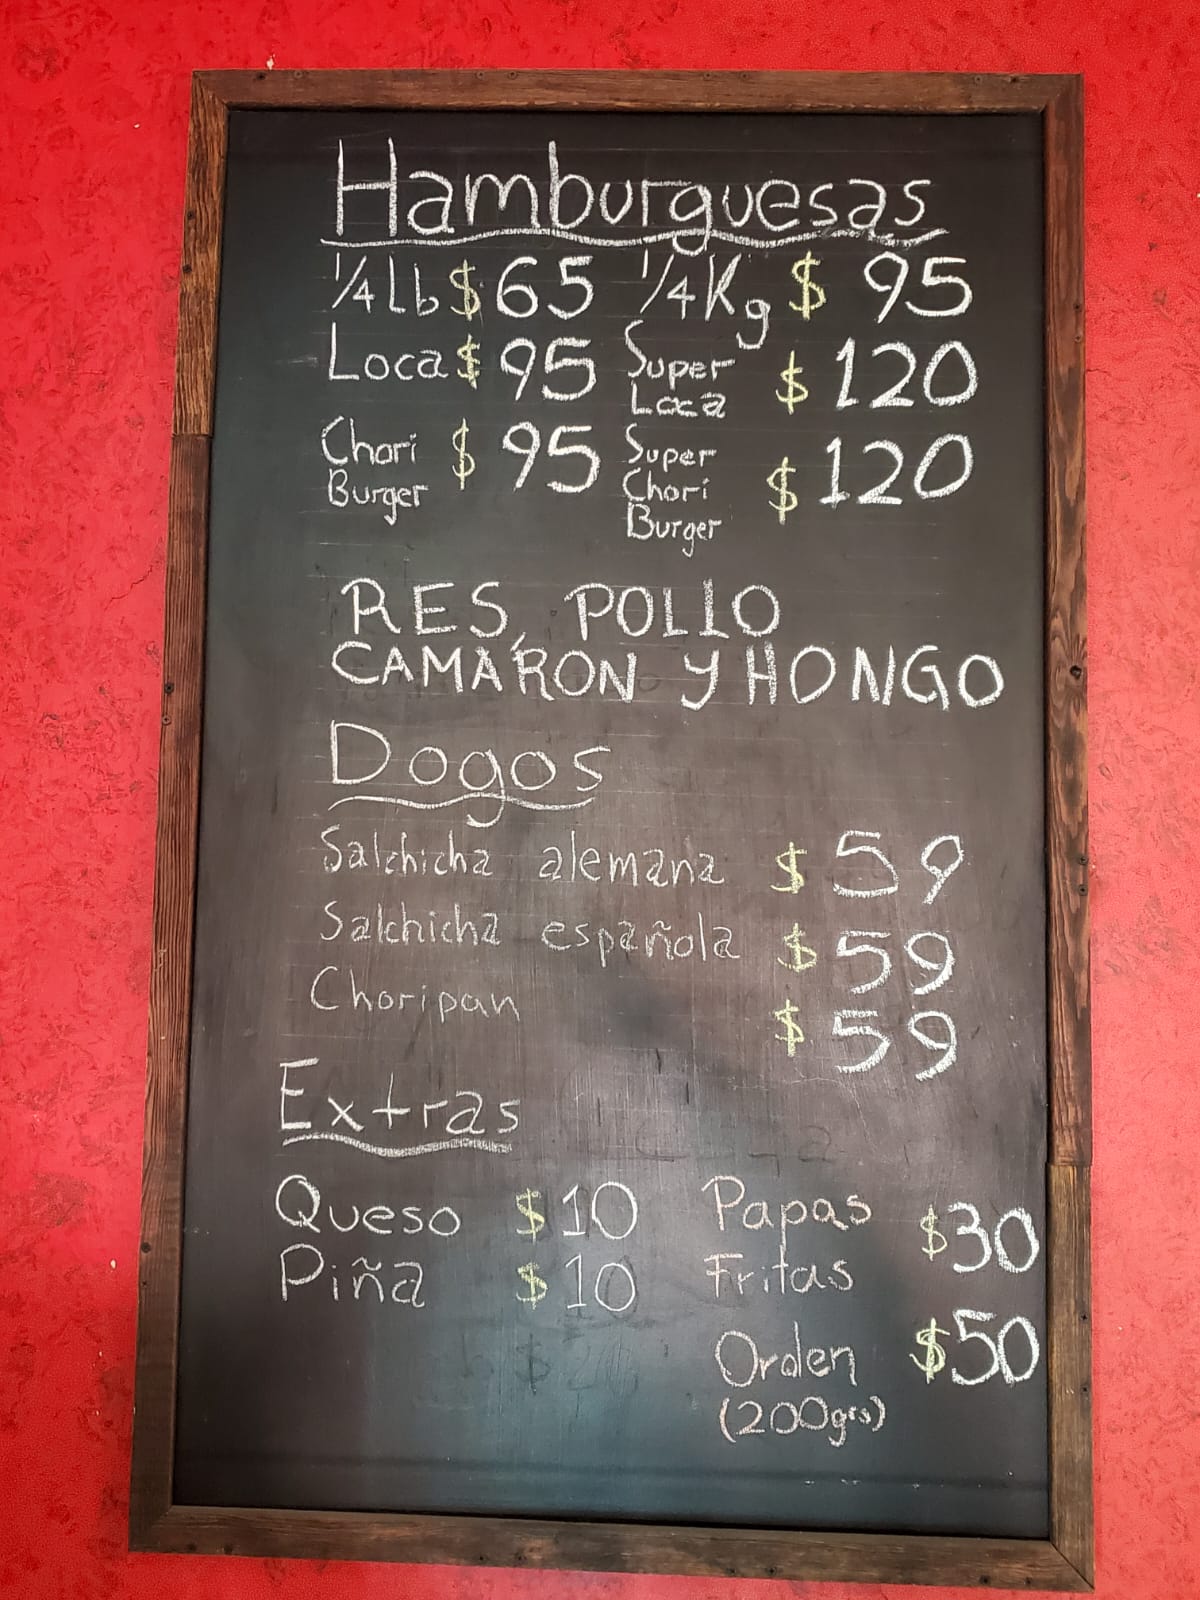 Hamburguesas
1/4 Lb $ 65 1/4 Kg $ 95
Loca $ 95 Super Loca $ 120
Chori Burger $ 95 Super Chori Burger $ 120
RES, POLLO
CAMARON Y HONGO
Dogos
Salchicha alemana $ 59
Salchicha española $ 59
Choripan $ 59
Extras
Queso $ 10 Papas Fritas $30
Piña $ 10
Orden (200grs) $50